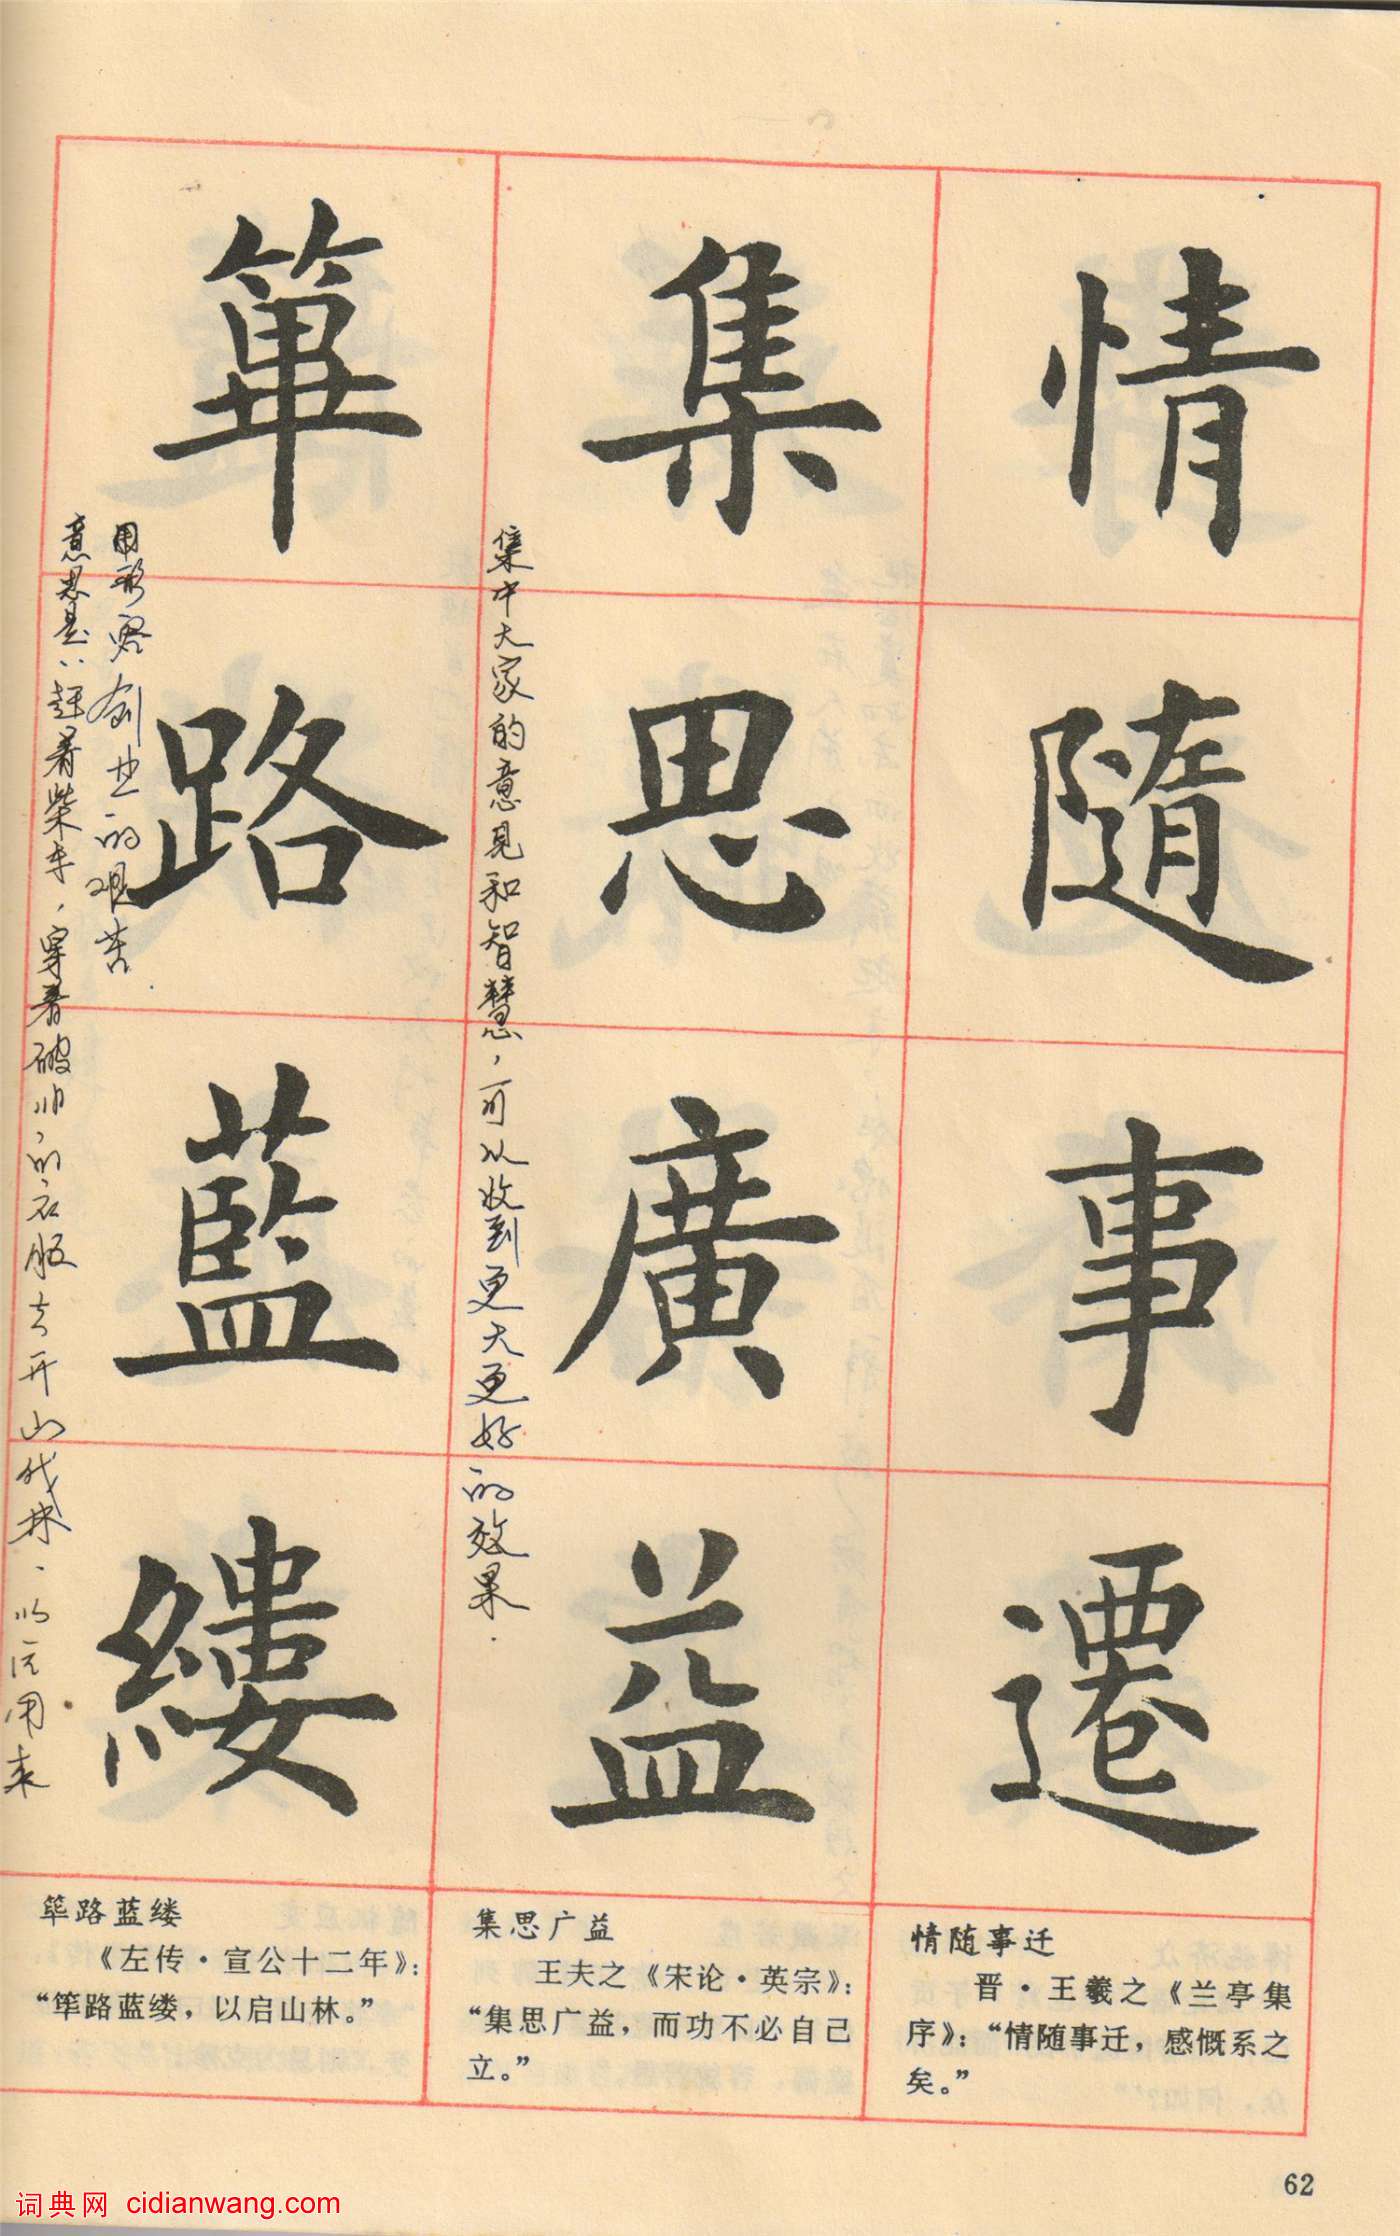 情隨事遷
集思廣益
集中大家的意见和智慧，可以收到更大更好的效果.
篳路藍縷
意思是：赶着柴车，穿着破旧的衣服去开山伐林、以后用来
用形容创业的艰苦
情随事迁
晋·王羲之《兰亭集
序》：“情随事迁，感慨系之
矣。”
集思广益
王夫之《宋论·英宗》：
“集思广益，而功不必自己
立。”
筚路蓝缕
《左传·宣公十二年》：
“筚路蓝缕，以启山林。”
62
词典网 cidianwang.com